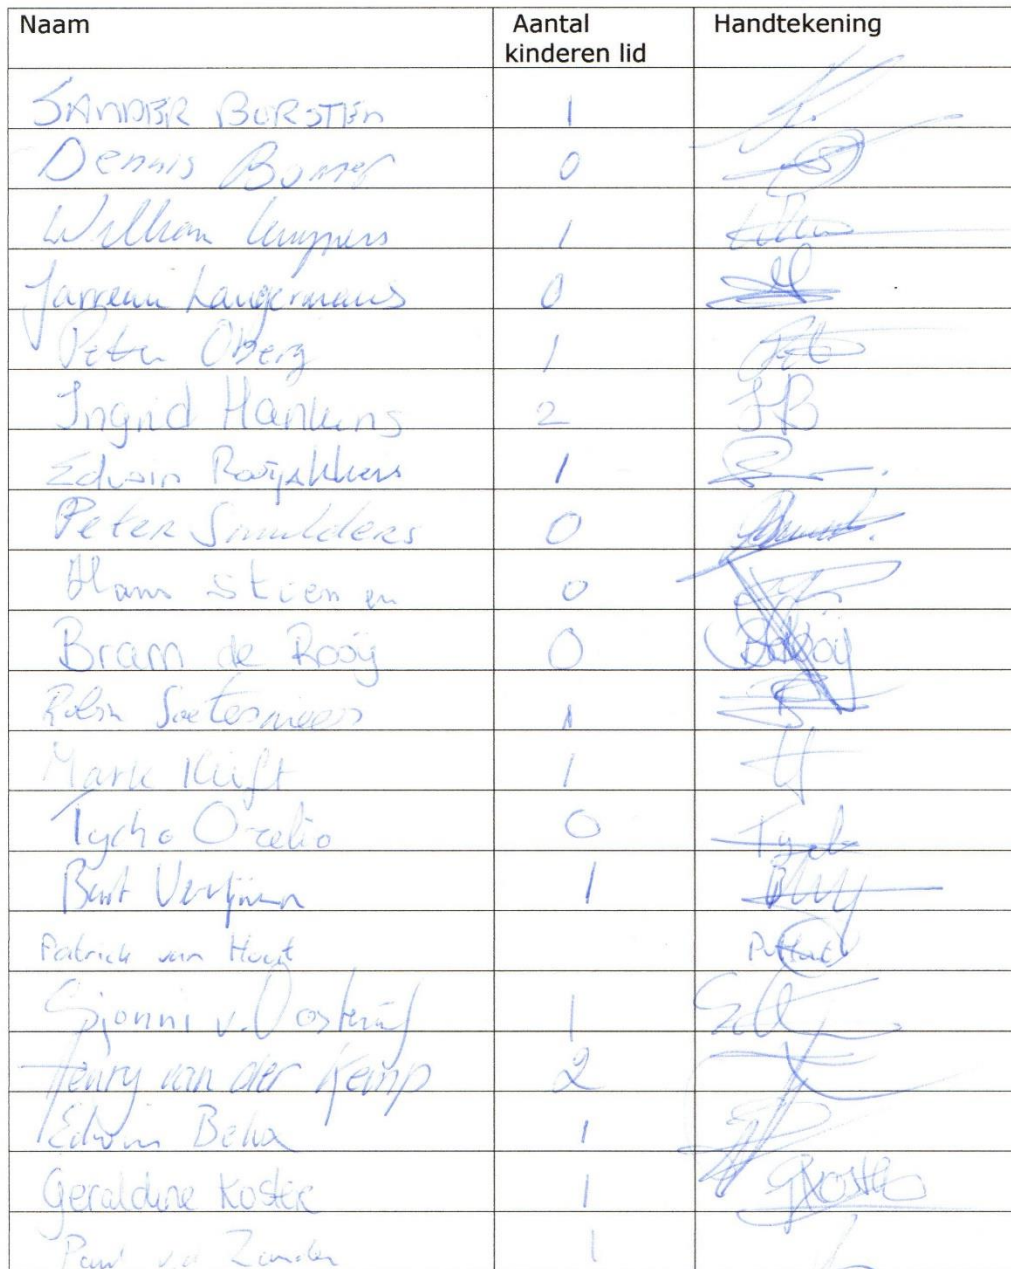 Naam Aantal kinderen lid Handtekening
SANDER BORSTEn 1
Dennis 0
William Kuypers 1
Langermans 0
Peter Oberg 1
Ingrid Hankens 2 IB
Edwin Rooijakkers 1
Peter Smulders 0
Hans Stienen 0
Bram de Rooij 0 BdRooij
Robin Soetesmeer 1
Mark Klijft 1
Tycho Orelio 0 Tycho
Bart Verlijnen 1
Patrick van Hout PvHout
Sjonni v. 1
Henry van der Kemp 2
Edwin 1
Geraldine Koster 1 GKoster
Paul v.d. Zanden 1